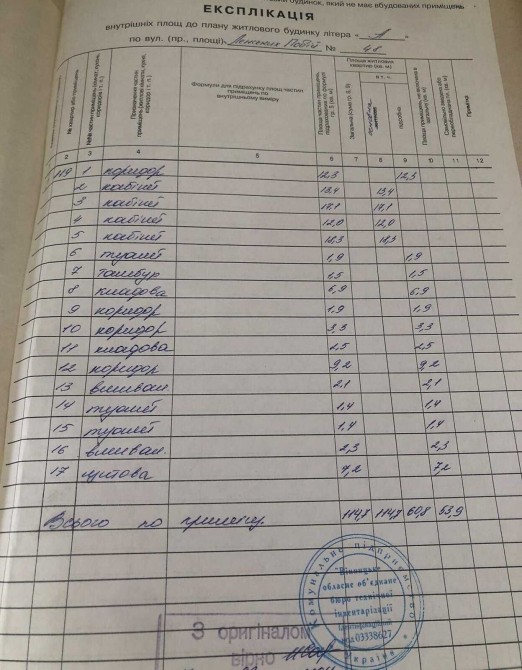 будинок, який не має вбудованих приміщень
ЕКСПЛІКАЦІЯ
внутрішніх площ до плану житлового будинку літера " А "
по вул. (пр., площі) № 48
№ квартири або приміщень
Призначення частин приміщень (житлова кімната, кухня, коридор і т. п.)
Формули для підрахунку площ частин приміщень по внутрішньому виміру
Площа житлових квартир (кв. м)
Загальна (сума гр. 8, 9)
в т. ч.
підсобна
Примітка
2 3 4 5 6 7 8 9 10 11 12
119 1 коридор 12,3 12,3
2 кабінет 13,4 13,4
3 кабінет 17,1 17,1
4 кабінет 12,0 12,0
5 кабінет 18,3 18,3
6 туалет 1,9 1,9
7 тамбур 1,5 1,5
8 кладова 6,9 6,9
9 коридор 1,9 1,9
10 коридор 3,3 3,3
11 кладова 2,5 2,5
12 коридор 9,2 9,2
13 вмивал. 2,1 2,1
14 туалет 1,4 1,4
15 туалет 1,4 1,4
16 вмивал. 2,3 2,3
17 щитова 7,2 7,2
Всього по приміщ. 114,7 114,7 60,8 53,9
Комунальне підприємство
"Вінницьке
обласне об'єднане
бюро технічної
інвентаризації
код 03338627
Україна
З оригіналом
вірно